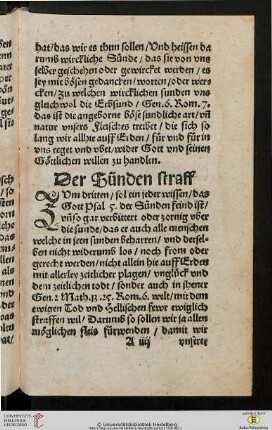 hat/das wir es thun sollen/Vnd heissen da
rumb wirckliche Sünde/das sie von vns
selber geschehen oder gewircket werden/es
sey mit bösen gedancken/worten/oder werc
cken/Zu welchen wircklichen sunden vns
gleichwol die Erbsund/Gen. 6. Rom. 7.
das ist die angeborne böse sundliche art/vñ
natur vnsers Fleisches treibet/die sich so
lang wir allhie auff Erden/für vnd für in
vns reget vnd vbet/wider Gott vnd seinen
Göttlichen willen zu handlen.
Der Sünden straff
ZVm dritten/sol ein jeder wissen/das
Gott Psal 5. der Sünden feind ist/
vñ so gar verbittert oder zornig vber
die sunde/das er auch alle menschen
welche in jren sunden beharren/vnd dersel
ben nicht widerumb los/noch from oder
gerecht werden/nicht allein hie auff Erden
mit allerley zeitlicher plagen/vnglück vnd
dem zeitlichen todt/sonder auch in jhener
Gen. 2 Math. 13. 25. Rom. 6. welt/mit dem
ewigen Tod vnd Hellischen fewr ewiglich
straffen wil/Darumb so sollen wir ja allen
möglichen fleis fürwenden/damit wir
A iiij vnsere
UNIVERSITÄTS-
BIBLIOTHEK
HEIDELBERG
© Universitätsbibliothek Heidelberg